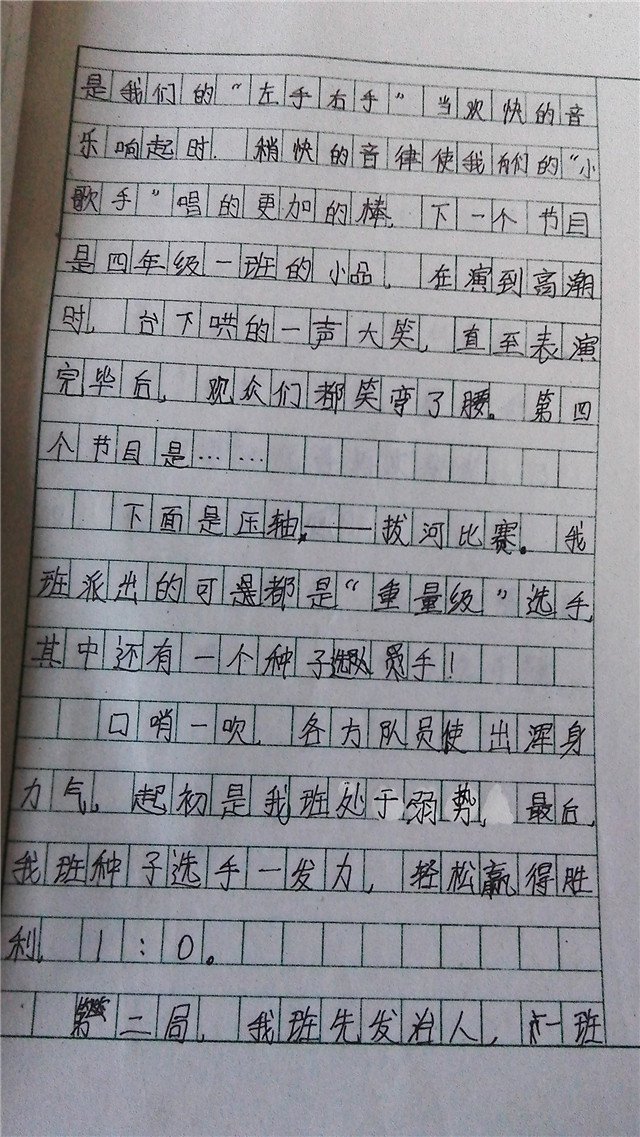 是我们的“左手右手”当欢快的音
乐响起时.稍快的音律使我们的“小
歌手”唱的更加的棒,下一个节目
是四年级一班的小品,在演到高潮
时,台下哄的一声大笑,直至表演
完毕后,观众们都笑弯了腰。第四
个节目是……
下面是压轴——拔河比赛。我
班派出的可是都是“重量级”选手,
其中还有一个种子选手!
口哨一吹,各方队员使出浑身
力气,起初是我班处于弱势,最后,
我班种子选手一发力,轻松赢得胜
利,1:0。
第二局,我班先发治人,一班